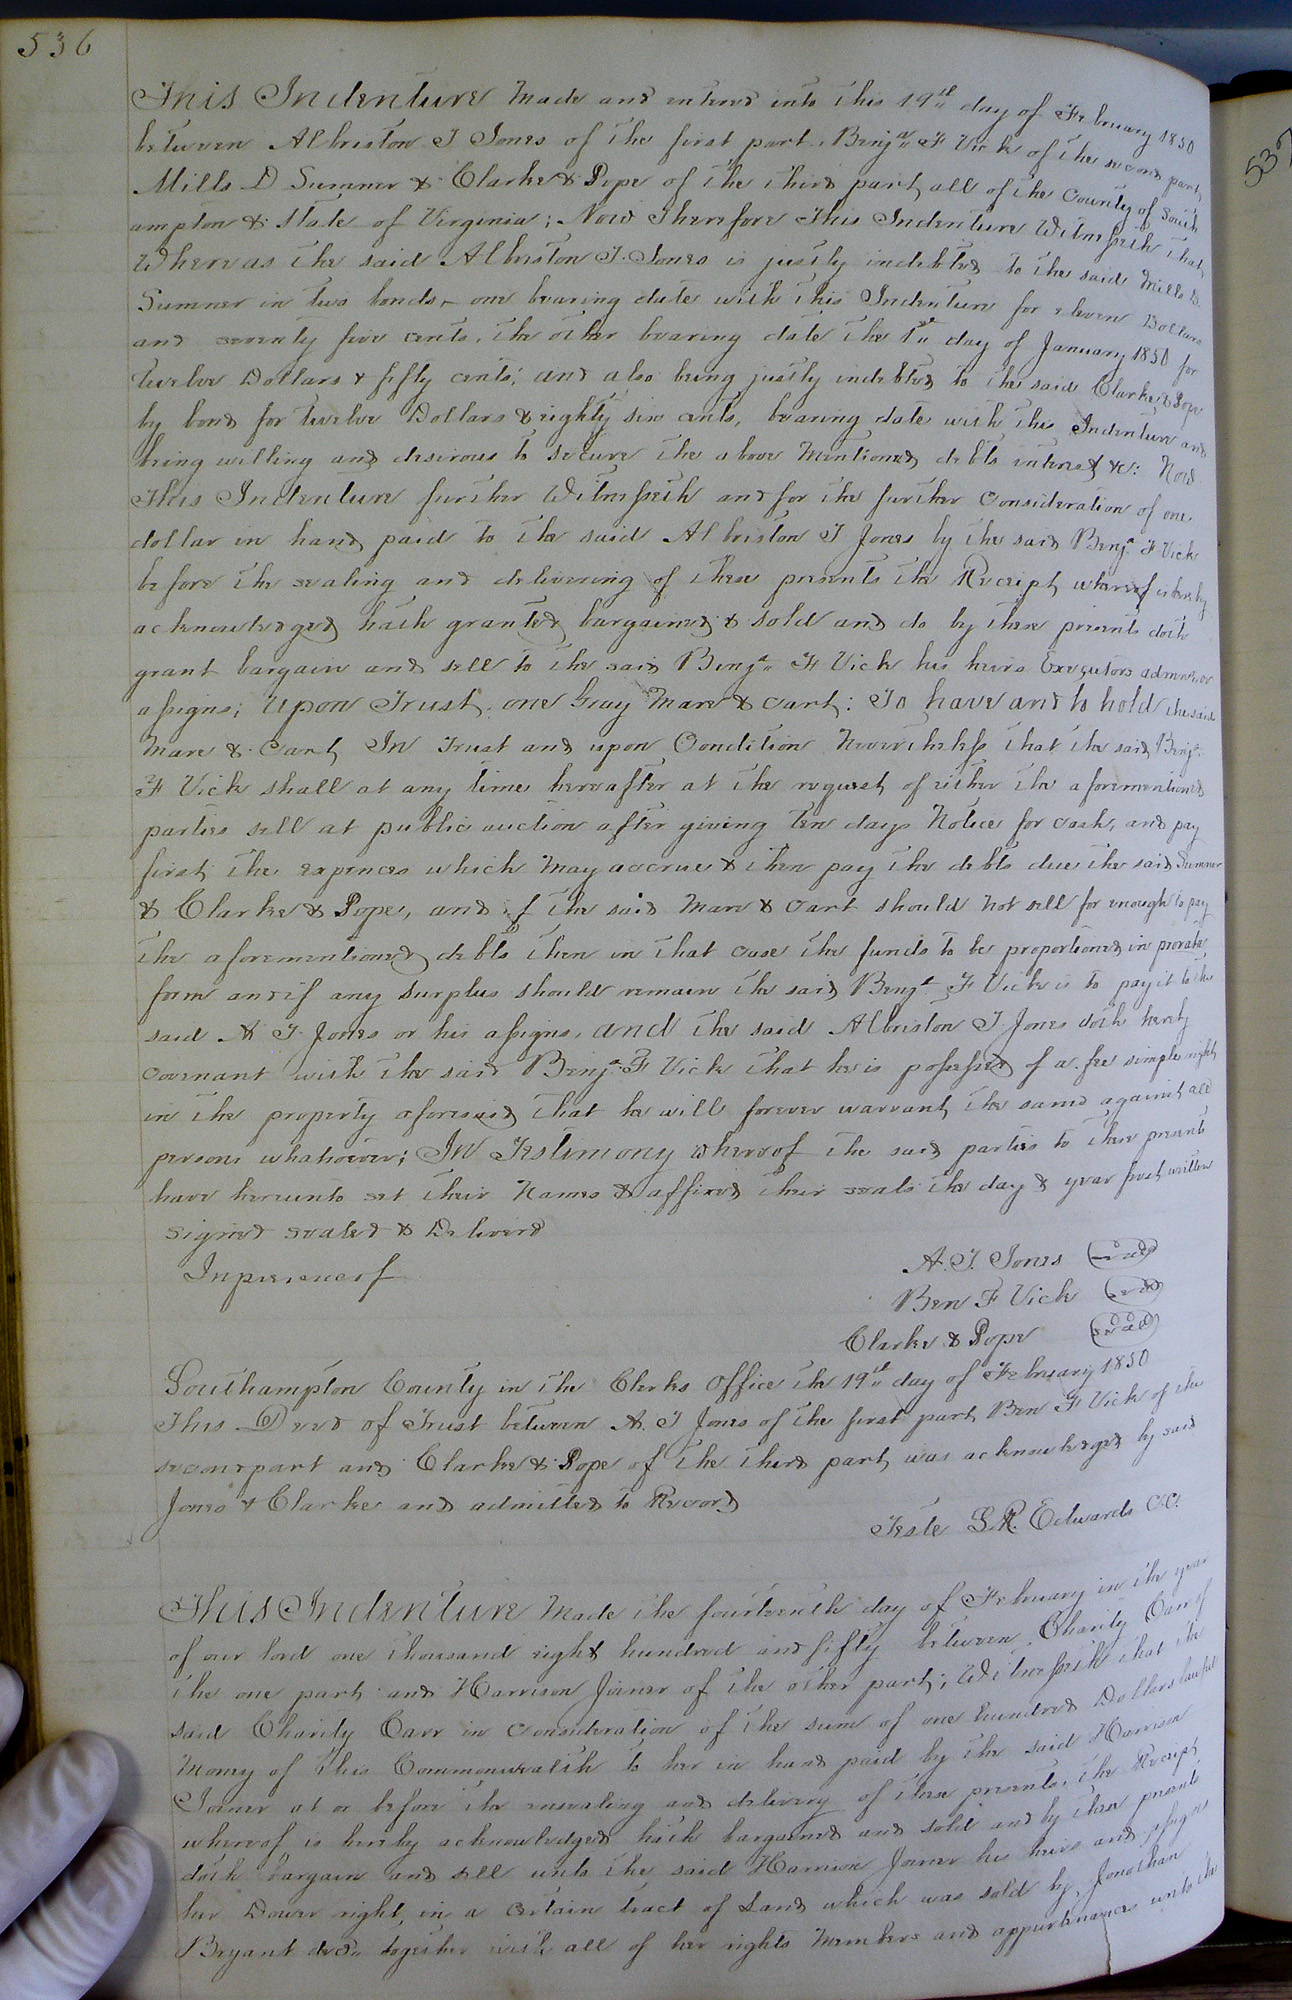 536
This Indenture Made and entered into this 19th day of February 1850
between Albriston J Jones of the first part, Benja F Vick of the second part,
Mills D Sumner & Clarke & Pope of the third part, all of the County of South
ampton & State of Virginia; Now Therefore This Indenture Witnesseth that,
Whereas the said Albriston J. Jones is justly indebted to the said Mills D.
Sumner in two bonds, one bearing date with this Indenture for eleven Dollars
and seventy five cents, the other bearing date the 1st day of January 1850 for
twelve Dollars & fifty cents; and also being justly indebted to the said Clarke & Pope
by bond for twelve Dollars & eighty six cents, bearing date with this Indenture and
being willing and desirous to secure the above Mentioned debts interest &c: Now
This Indenture further Witnesseth and for the further Consideration of one
dollar in hand paid to the said Albriston J Jones by the said Benja F Vick
before the sealing and delivering of these presents the Receipt whereof is hereby
acknowledged hath granted, bargained & sold and do by these presents doth
grant bargain and sell to the said Benja F Vick his heirs Executors admrs, or
assigns; upon Trust, one Gray Mare & cart: To have and to hold the said
Mare & Cart, In Trust and upon Condition Nevertheless that the said Benja
F Vick shall at any time hereafter at the request of either the aforementioned
parties sell at public auction after giving ten days Notice for cash, and pay
first the expences which May accrue & then pay the debts due the said Sumner
& Clarke & Pope, and if the said Mare & cart should not sell for enough to pay
the aforementioned debts then in that case the funds to be proportioned in prorata
form and if any surplus should remain the said Benja F Vick is to pay it to the
said A J Jones or his assigns, and the said Albriston J Jones doth hereby
covenant with the said Benja F Vick that he is possessed of a fee simple right,
in the property aforesaid that he will forever warrant, the same against all
persons whatsoever; In Testimony whereof the said parties to these presents
have hereunto set their Names & affixed their seals the day & year first written
signed sealed & Delivered
In presence of
A. J. Jones (seal)
Ben F Vick (seal)
Clarke & Pope (seal)
Southampton County in the Clerks Office the 19th day of February 1850
This Deed of Trust between A. J Jones of the first part, Ben F Vick of the
second part and Clarke & Pope of the third part, was acknowledged by said
Jones & Clarke and admitted to Record
Teste L. R. Edwards C.C.
This Indenture Made the fourteenth day of February in the year
of our lord one thousand eight hundred and fifty between Charity Carr of
the one part and Harrison Joiner of the other part; Witnesseth that the
said Charity Carr in consideration of the sum of one hundred Dollars lawful
Money of this Commonwealth to her in hand paid by the said Harrison
Joiner at or before the ensealing and delivery of these presents, the Receipt
whereof is hereby acknowledged hath bargained and sold and by these presents
doth bargain and sell unto the said Harrison Joiner his heirs and assigns
her Dower right, in a certain tract of Land which was sold by Jonathan
Bryant decd, together with all of her rights Members and appurtenances unto the
537